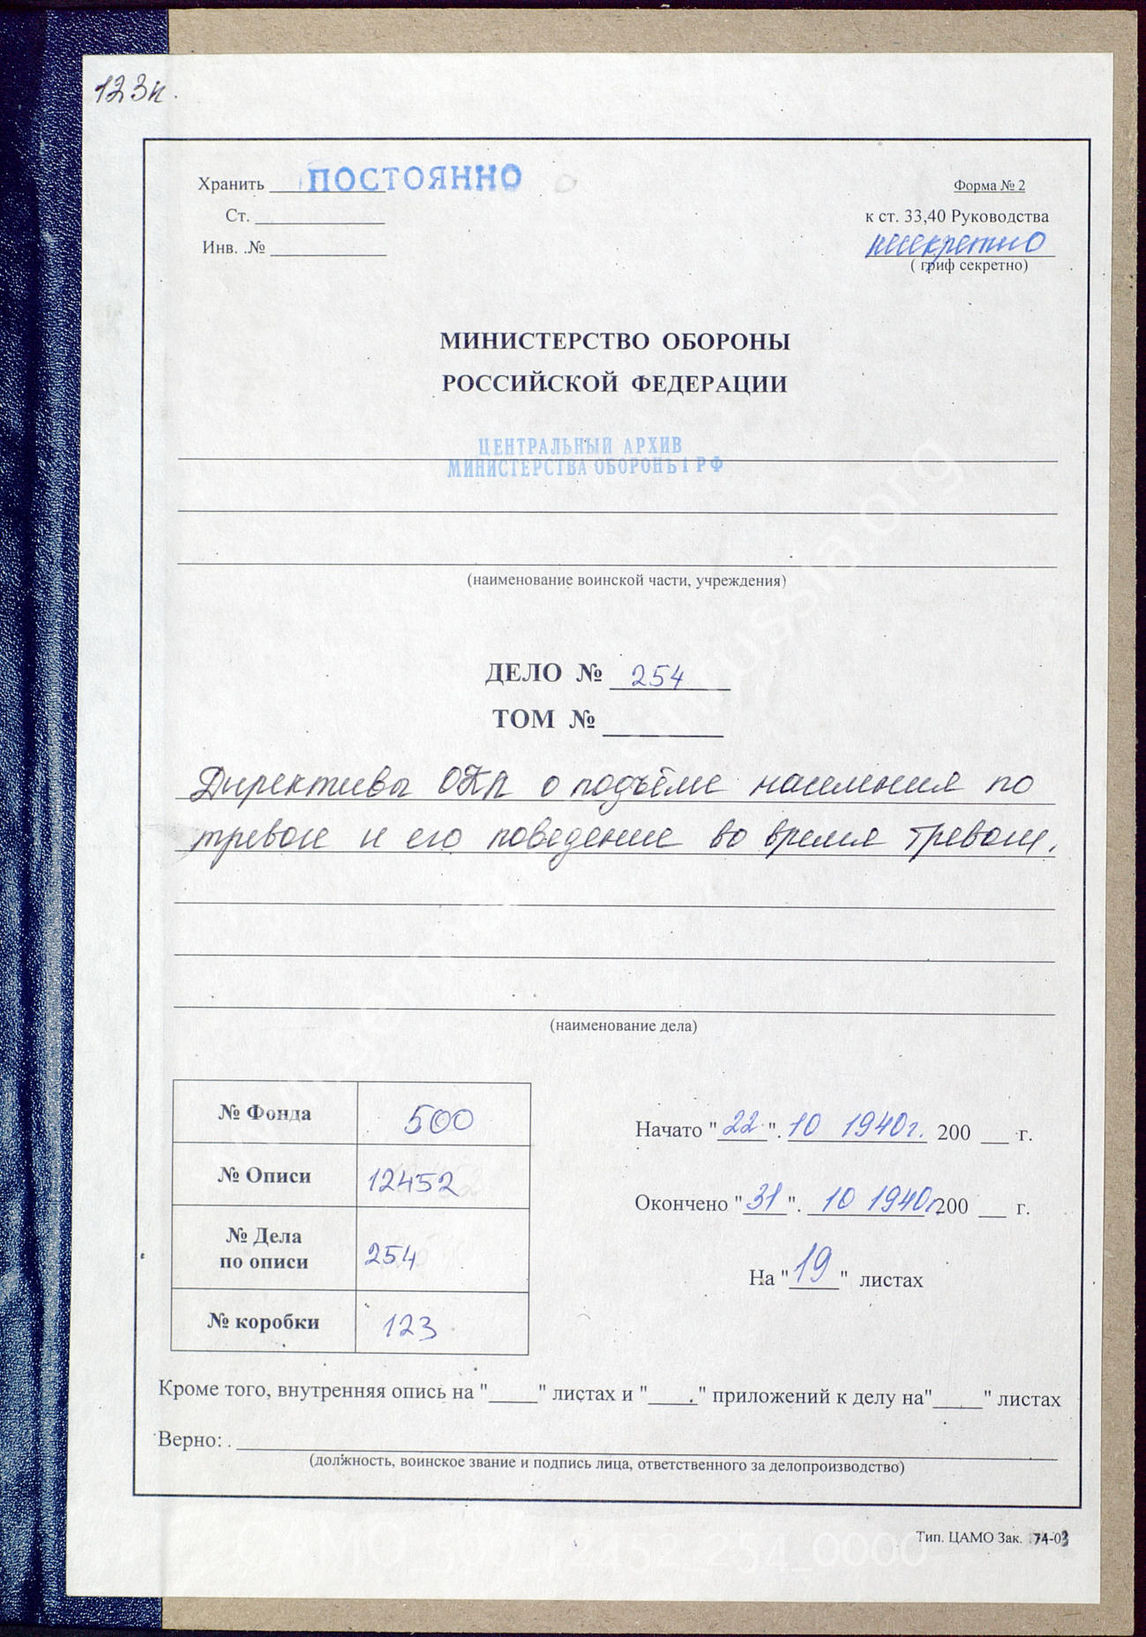 123к.
Хранить ПОСТОЯННО
Форма № 2
Ст.
к ст. 33,40 Руководства
Инв. .№
несекретно
( гриф секретно)
МИНИСТЕРСТВО ОБОРОНЫ
РОССИЙСКОЙ ФЕДЕРАЦИИ
ЦЕНТРАЛЬНЫЙ АРХИВ
МИНИСТЕРСТВА ОБОРОНЫ РФ
(наименование воинской части, учреждения)
ДЕЛО № 254
ТОМ №
Директивы ОКЛ о подъёме населения по
тревоге и его поведение во время тревоги.
(наименование дела)
№ Фонда 500
№ Описи 12452
№ Дела
по описи 254
№ коробки 123
Начато "22". 10 1940г. 200 __ г.
Окончено "31". 10 1940г 200 __ г.
На "19" листах
Кроме того, внутренняя опись на "____" листах и "____" приложений к делу на"____" листах
Верно:
(должность, воинское звание и подпись лица, ответственного за делопроизводство)
Тип. ЦАМО Зак. 74-03